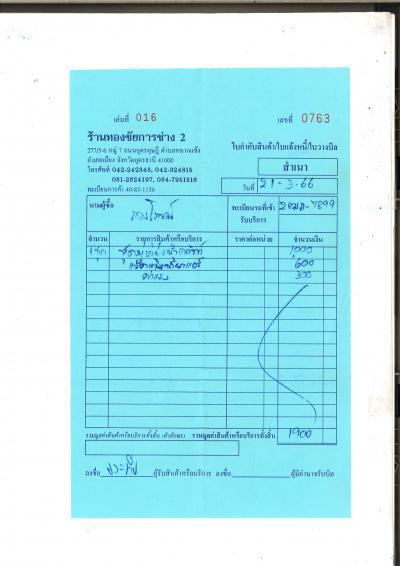 เล่มที่ 016 เลขที่ 0763
ร้านทองชัยการช่าง 2
277/5-6 หมู่ 7 ถนนอุดรดุษฎี ตำบลหมากแข้ง
อำเภอเมือง จังหวัดอุดรธานี 41000
โทรศัพท์ 042-242348, 042-324815
081-2624197, 084-7951516
ทะเบียนการค้า 40-83-1156
ใบกำกับสินค้า/ใบแจ้งหนี้/ใบวางบิล
สำเนา
วันที่ 21-3-66
นามผู้ซื้อ
ทะเบียนรถที่เข้ารับบริการ
จำนวน รายการสินค้าหรือบริการ ราคาต่อหน่วย จำนวนเงิน
1000
600
ค่าแรง 300
รวมมูลค่าสินค้าหรือบริการทั้งสิ้น (ตัวอักษร) รวมมูลค่าสินค้าหรือบริการทั้งสิ้น 1900
ลงชื่อ ผู้รับสินค้าหรือบริการ ลงชื่อ ผู้มีอำนาจรับบิล